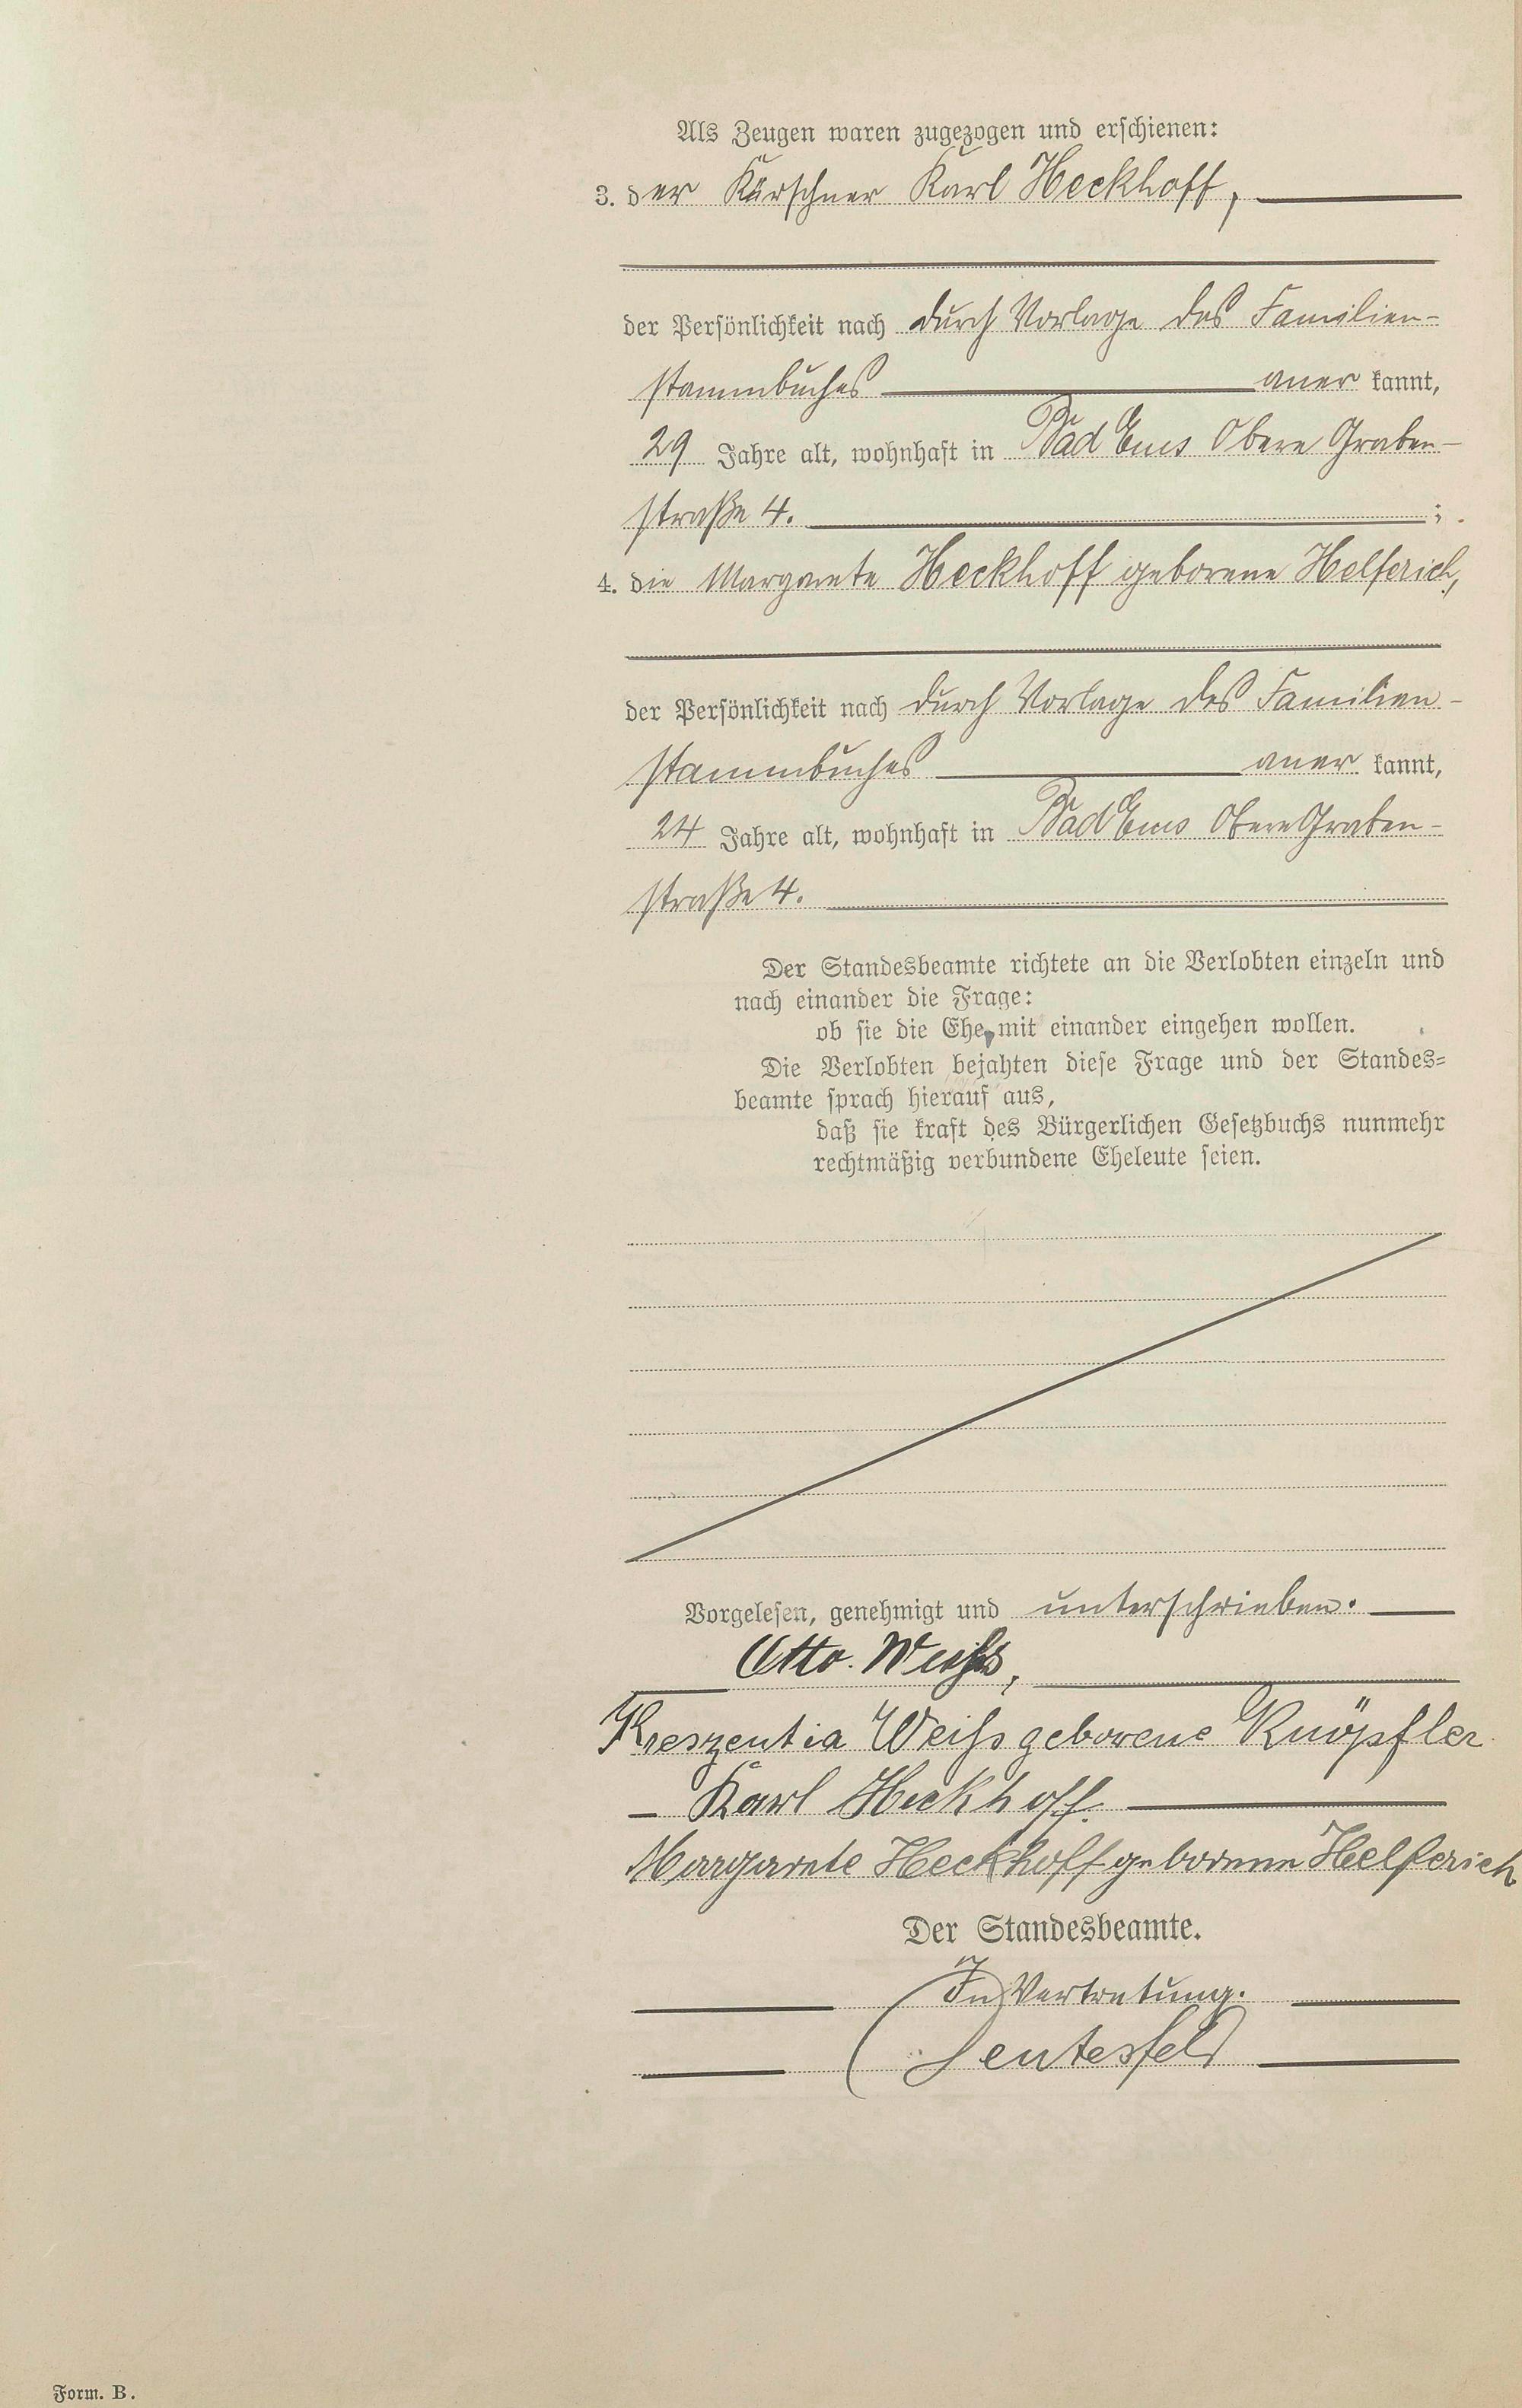 Als Zeugen waren zugezogen und erschienen:
3. der Kürschner Karl Heckhoff,
der Persönlichkeit nach durch Vorlage des Familien-
stammbuches aner kannt,
29 Jahre alt, wohnhaft in Bad Ems Obere Graben-
straße 4. ;
4. die Margarete Heckhoff geborene Helferich,
der Persönlichkeit nach durch Vorlage des Familien-
stammbuches aner kannt,
24 Jahre alt, wohnhaft in Bad Ems Obere Graben-
straße 4.
Der Standesbeamte richtete an die Verlobten einzeln und
nach einander die Frage:
ob sie die Ehe mit einander eingehen wollen.
Die Verlobten bejahten diese Frage und der Standes=
beamte sprach hierauf aus,
daß sie kraft des Bürgerlichen Gesetzbuchs nunmehr
rechtmäßig verbundene Eheleute seien.
Vorgelesen, genehmigt und unterschrieben.
Otto Weiß,
Kreszentia Weiß geborene Knöpfler
Karl Heckhoff.
Margarete Heckhoff geborene Helferich
Der Standesbeamte.
In Vertretung.
Form. B.